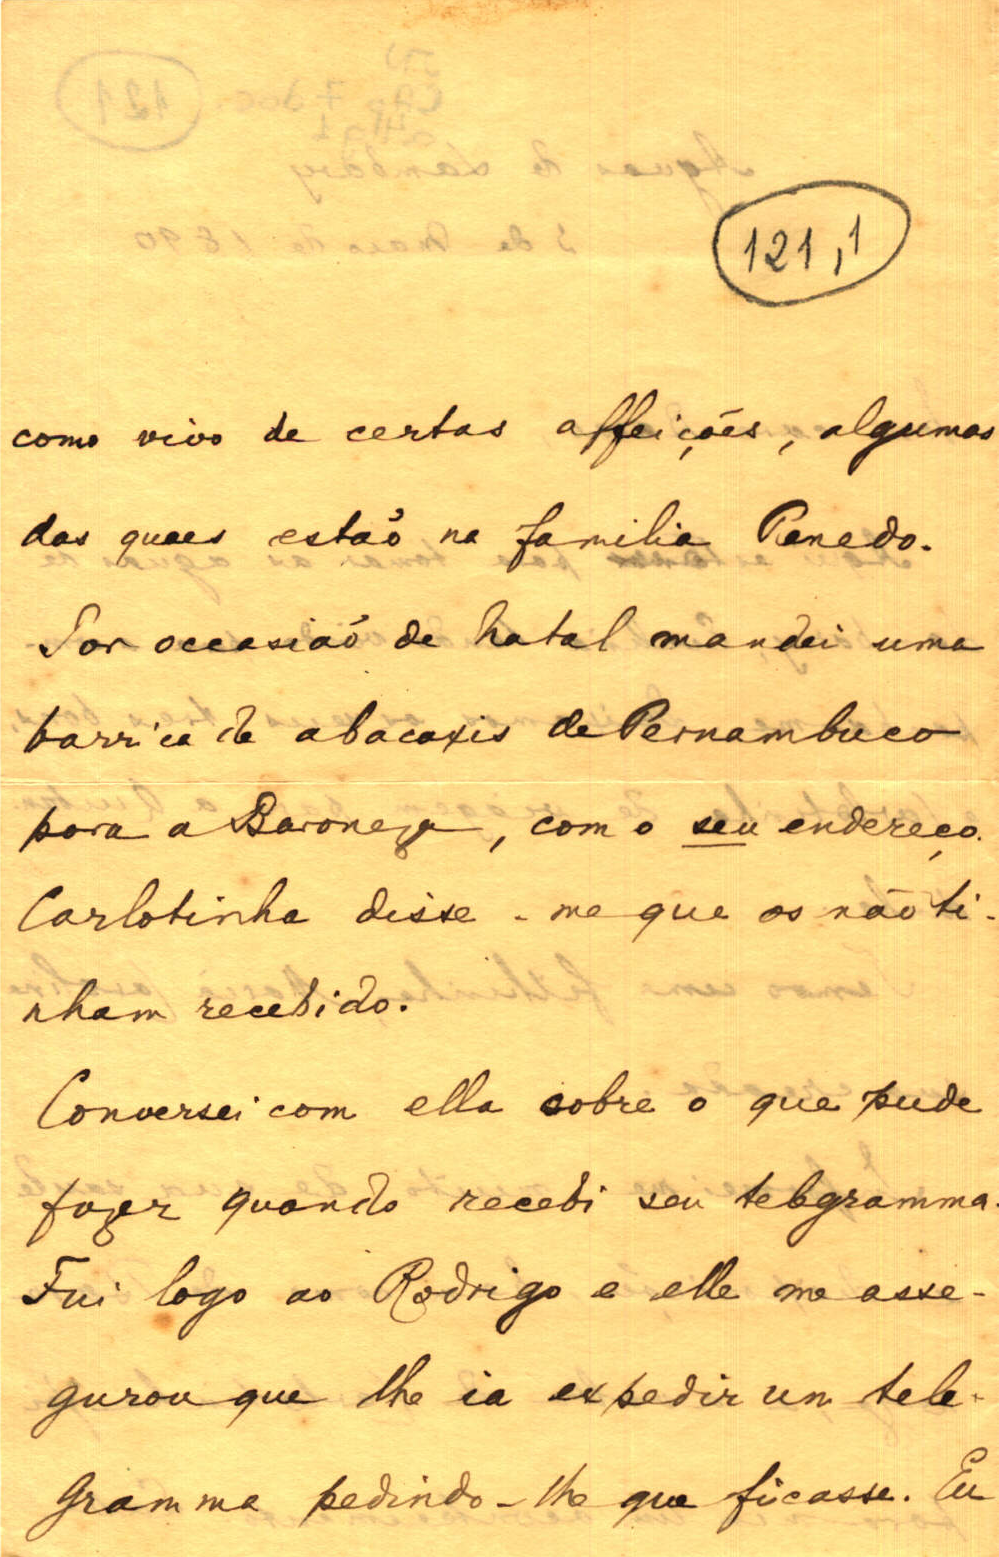 121,1
como vivo de certas affeições, algumas
das quaes estaõ na familia Penedo.
Por occasiaõ de natal mandei uma
barrica de abacaxis de Pernambuco
para a Baroneza, com o seu endereço.
Carlotinha disse-me que os não ti-
nham recebido.
Conversei com ella sobre o que pude
fazer quando recebi seu telegramma.
Fui logo ao Rodrigo e elle me asse-
gurou que lhe ia expedir um tele-
gramma pedindo-lhe que ficasse. Eu